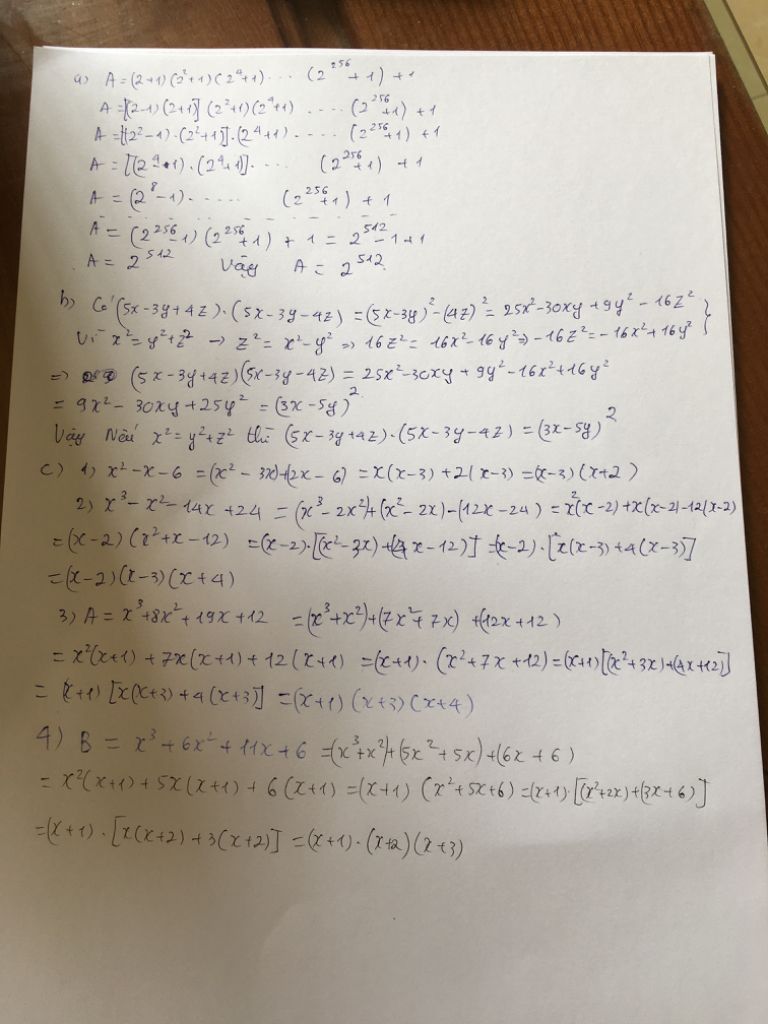 a) A = (2+1)(2²+1)(2⁴+1)... (2²⁵⁶+1)+1
A = [(2-1)(2+1)](2²+1)(2⁴+1) ..... (2²⁵⁶+1)+1
A = [(2²-1).(2²+1)].(2⁴+1)..... (2²⁵⁶+1)+1
A = [(2⁴-1).(2⁴+1)].... (2²⁵⁶+1)+1
A = (2⁸-1)...... (2²⁵⁶+1)+1
A = (2²⁵⁶-1)(2²⁵⁶+1)+1 = 2⁵¹²-1+1
A = 2⁵¹² Vậy A = 2⁵¹²
b) Có (5x-3y+4z).(5x-3y-4z) = (5x-3y)²-(4z)² = 25x²-30xy+9y²-16z² }
Vì x²=y²+z² → z² = x²-y² => 16z² = 16x²-16y² => -16z² = -16x²+16y² }
=> (5x-3y+4z)(5x-3y-4z) = 25x²-30xy+9y²-16x²+16y²
= 9x²-30xy+25y² = (3x-5y)²
Vậy Nếu x²=y²+z² thì (5x-3y+4z).(5x-3y-4z) = (3x-5y)²
c) 1) x²-x-6 = (x²-3x)+(2x-6) = x(x-3)+2(x-3) = (x-3)(x+2)
2) x³-x²-14x+24 = (x³-2x²)+(x²-2x)-(12x-24) = x²(x-2)+x(x-2)-12(x-2)
= (x-2)(x²+x-12) = (x-2).[(x²-3x)+(4x-12)] = (x-2).[x(x-3)+4(x-3)]
= (x-2)(x-3)(x+4)
3) A = x³+8x²+19x+12 = (x³+x²)+(7x²+7x)+(12x+12)
= x²(x+1)+7x(x+1)+12(x+1) = (x+1).(x²+7x+12) = (x+1)[(x²+3x)+(4x+12)]
= (x+1)[x(x+3)+4(x+3)] = (x+1)(x+3)(x+4)
4) B = x³+6x²+11x+6 = (x³+x²)+(5x²+5x)+(6x+6)
= x²(x+1)+5x(x+1)+6(x+1) = (x+1)(x²+5x+6) = (x+1).[(x²+2x)+(3x+6)]
= (x+1).[x(x+2)+3(x+2)] = (x+1).(x+2)(x+3)